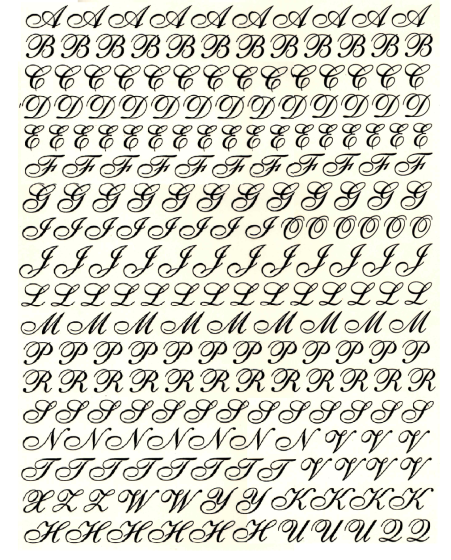 A A A A A A A A A A
B B B B B B B B B B B B B
C C C C C C C C C C C C C C
D D D D D D D D D D D D D
E E E E E E E E E E E E E E E E E E
F F F F F F F F F F F
G G G G G G G G G G G G
I I I I I I I I O O O O O O
J J J J J J J J J J J J
L L L L L L L L L L L L L L
M M M M M M M M M
P P P P P P P P P P P P
R R R R R R R R R R R R R
S S S S S S S S S S S S
N N N N N N N V V V
T T T T T T T T V V V V
X Z Z W W Y Y K K K K
H H H H H H U U U Q Q